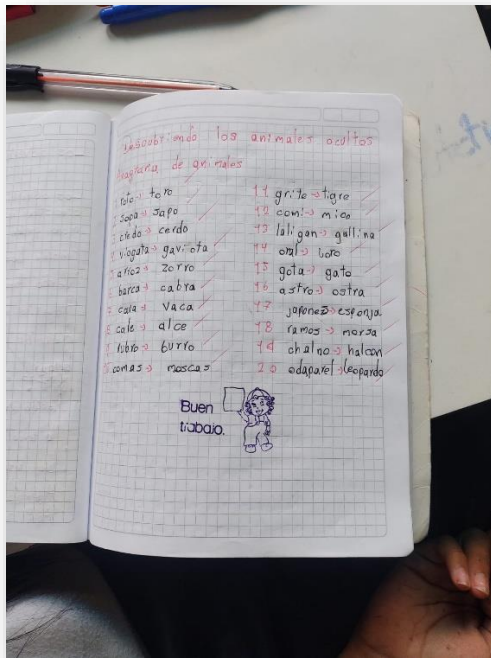 Descubriendo los animales ocultos
Anagrama de animales
1 roto → toro
2 sopa → sapo
3 credo → cerdo
4 viogata → gaviota
5 arroz → zorro
6 barca → cabra
7 cava → vaca
8 cale → alce
9 rubro → burro
10 comas → moscas
11 grite → tigre
12 comi → mico
13 laligan → gallina
14 oral → loro
15 gota → gato
16 astro → ostra
17 japones → esponja
18 ramos → morsa
19 chalno → halcon
20 odaparel → leopardo
Buen
trabajo.